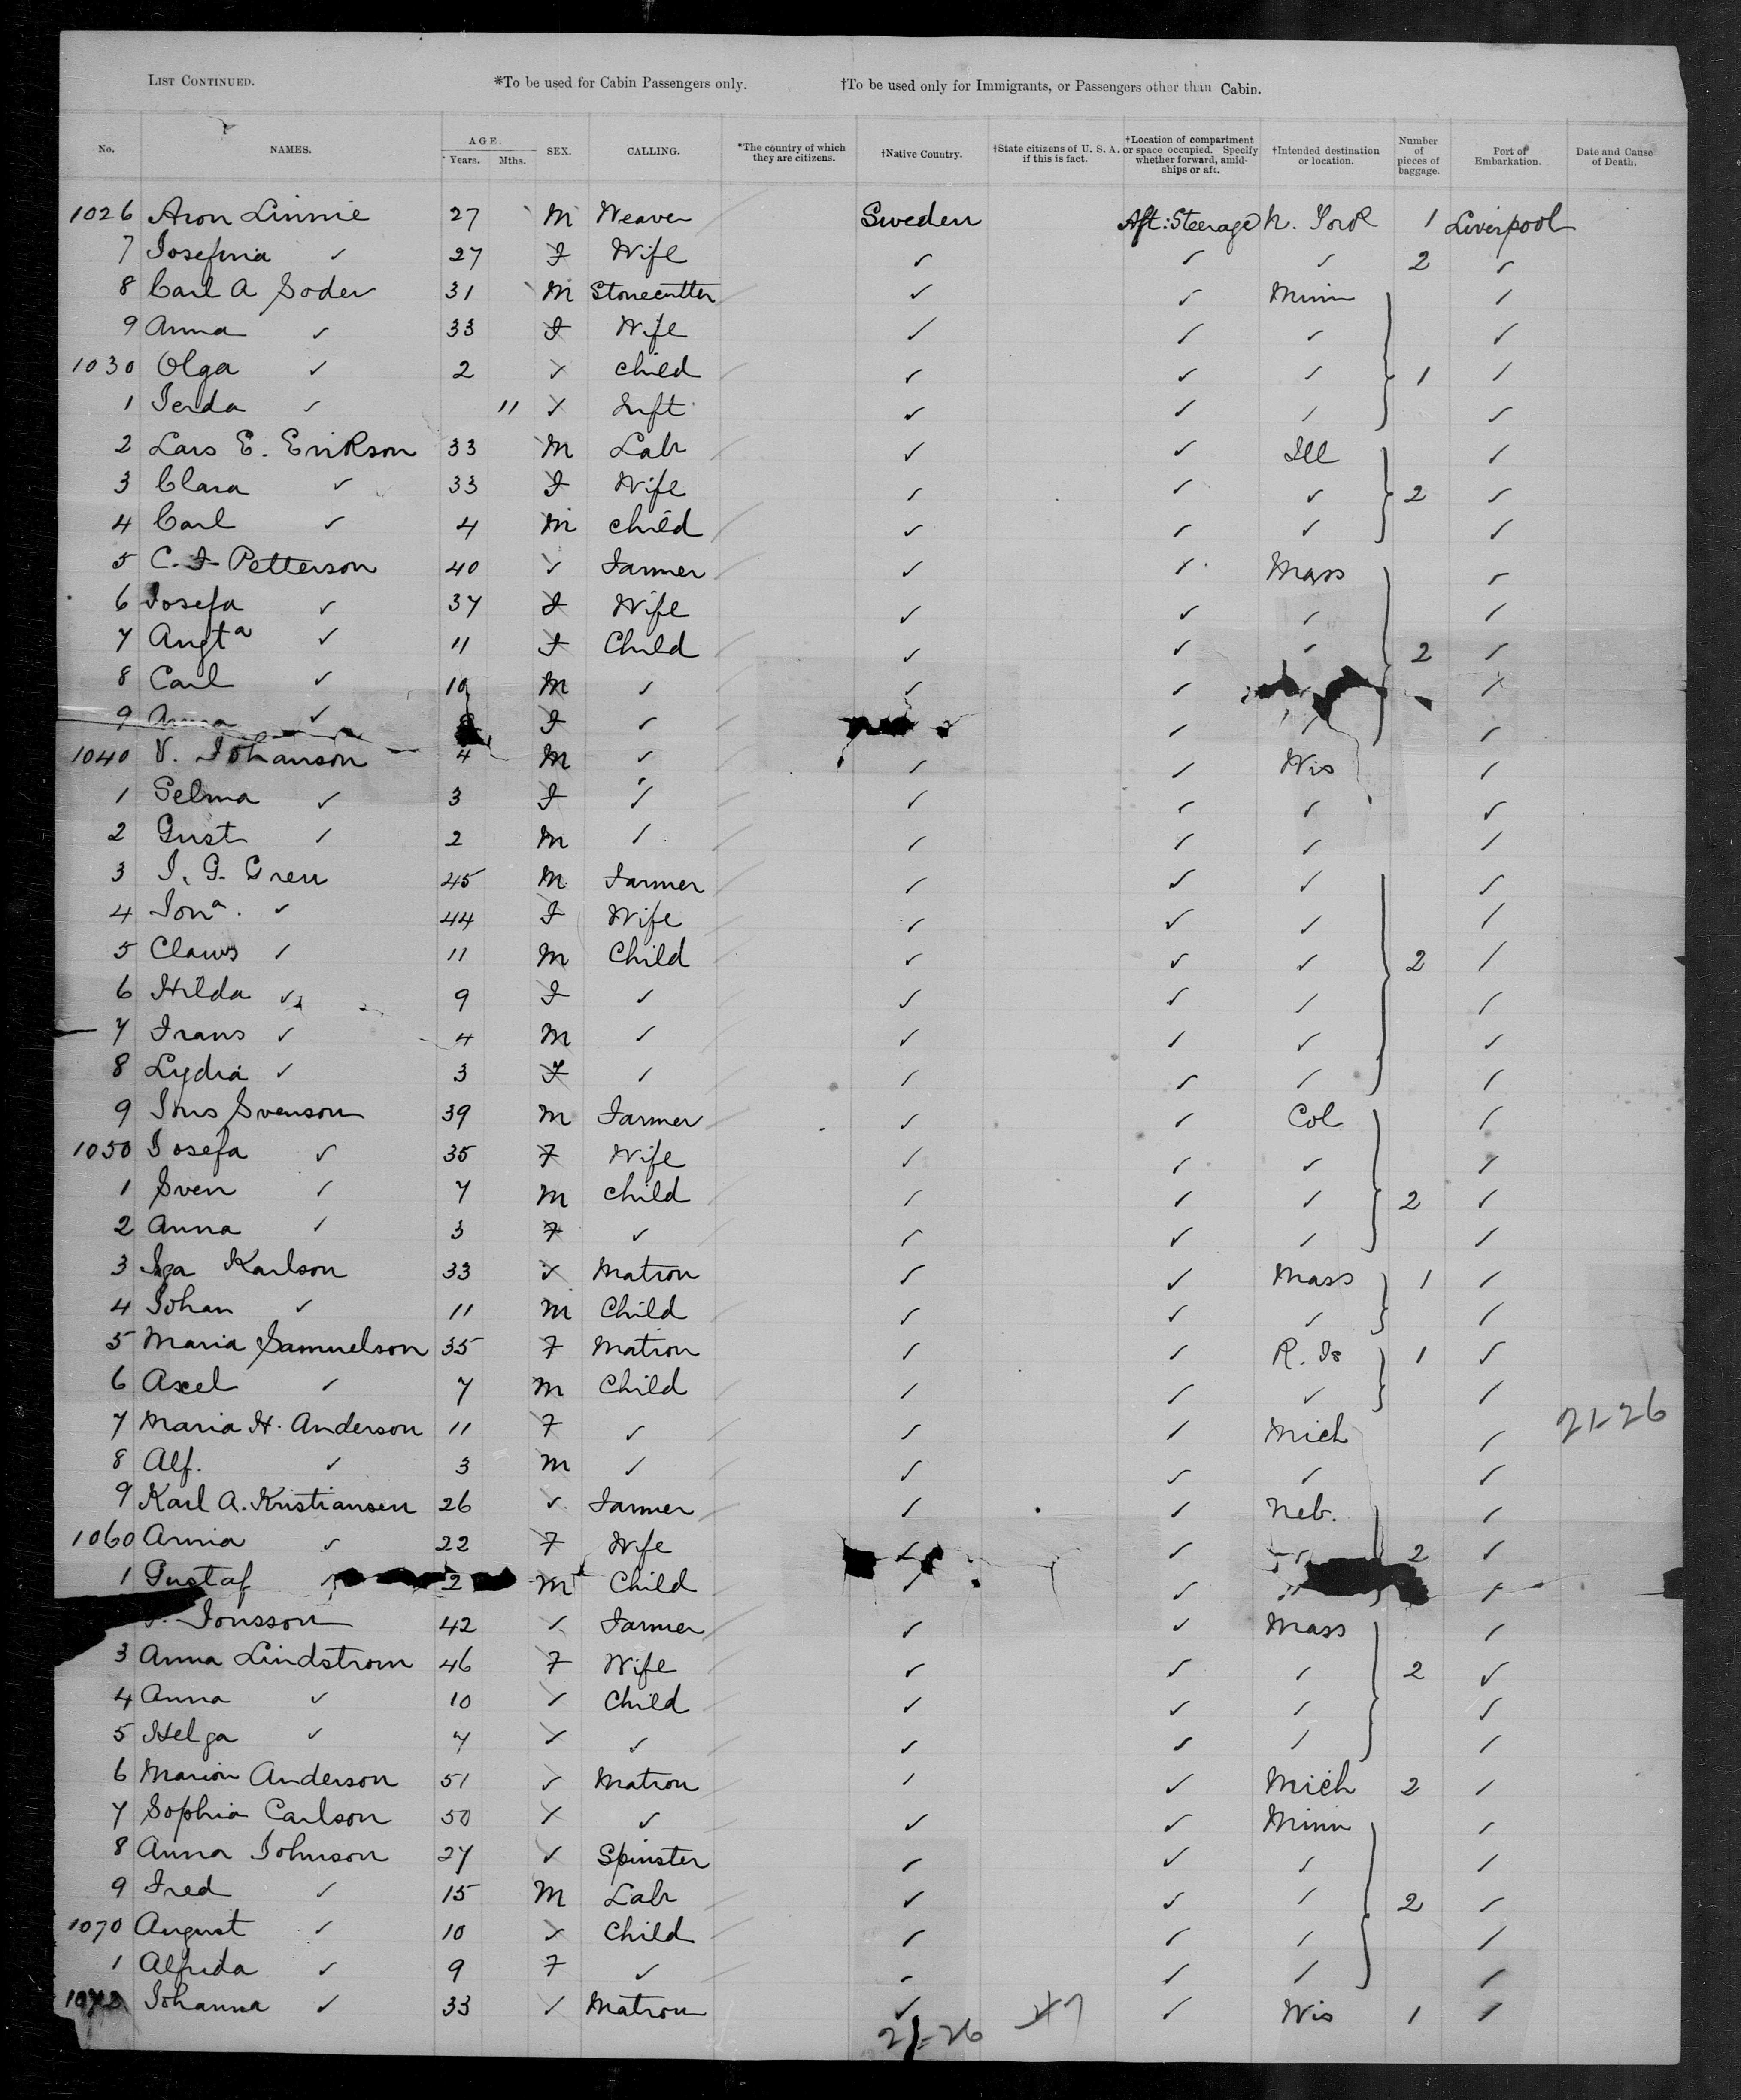 LIST CONTINUED. *To be used for Cabin Passengers only. †To be used only for Immigrants, or Passengers other than Cabin.
No. NAMES. AGE. Years. Mths. SEX. CALLING. *The country of which they are citizens. †Native Country. †State citizens of U. S. A. if this is fact. †Location of compartment or space occupied. Specify whether forward, amidships or aft. †Intended destination or location. Number of pieces of baggage. Port of Embarkation. Date and Cause of Death.
1026 Aron Linnie 27 M Weaver Sweden Aft: Steerage N. York 1 Liverpool
7 Josefina ✓ 27 F Wife ✓ ✓ ✓ 2 ✓
8 Carl A Soder 31 M Stonecutter ✓ ✓ Minn ✓
9 Anna ✓ 33 F Wife ✓ ✓ ✓ ✓
1030 Olga ✓ 2 ✓ Child ✓ ✓ ✓ 1 ✓
1 Jerda ✓ 11 ✓ Inft ✓ ✓ ✓ ✓
2 Lars E. Erikson 33 M Labr ✓ ✓ Ill ✓
3 Clara ✓ 33 F Wife ✓ ✓ ✓ 2 ✓
4 Carl ✓ 4 M Child ✓ ✓ ✓ ✓
5 C. F Petterson 40 ✓ Farmer ✓ ✓ Mass ✓
6 Josefa ✓ 37 F Wife ✓ ✓ ✓ ✓
7 Augta ✓ 11 F Child ✓ ✓ ✓ 2 ✓
8 Carl ✓ 10 M ✓ ✓ ✓ ✓ ✓
9 Anna ✓ F ✓ ✓ ✓ ✓
1040 V. Johanson 4 M ✓ ✓ ✓ Wis ✓
1 Selma ✓ 3 F ✓ ✓ ✓ ✓ ✓
2 Gust ✓ 2 M ✓ ✓ ✓ ✓ ✓
3 J. G. Gren 45 M Farmer ✓ ✓ ✓ ✓
4 Jona. ✓ 44 F Wife ✓ ✓ ✓ ✓
5 Claus ✓ 11 M Child ✓ ✓ ✓ 2 ✓
6 Hilda ✓ 9 F ✓ ✓ ✓ ✓ ✓
7 Frans ✓ 4 M ✓ ✓ ✓ ✓ ✓
8 Lydia ✓ 3 F ✓ ✓ ✓ ✓ ✓
9 Jns Svenson 39 M Farmer ✓ ✓ Col ✓
1050 Josefa ✓ 35 F Wife ✓ ✓ ✓ ✓
1 Sven ✓ 7 M Child ✓ ✓ ✓ 2 ✓
2 Anna ✓ 3 F ✓ ✓ ✓ ✓ ✓
3 Karlson 33 ✓ Matron ✓ ✓ Mass 1 ✓
4 Johan ✓ 11 M Child ✓ ✓ ✓ ✓
5 Maria Samuelson 35 F Matron ✓ ✓ R. Is 1 ✓
6 Axel ✓ 7 M Child ✓ ✓ ✓ ✓
7 Maria H. Anderson 11 F ✓ ✓ ✓ Mich ✓ 21-26
8 Alf. ✓ 3 M ✓ ✓ ✓ ✓ ✓
9 Karl A. Kristiansen 26 ✓ Farmer ✓ ✓ Neb. ✓
1060 Anna ✓ 22 F Wife ✓ ✓ ✓ 2 ✓
1 Gustaf ✓ 2 M Child ✓ ✓ ✓
Jonsson 42 ✓ Farmer ✓ ✓ Mass ✓
3 Anna Lindstrom 46 F Wife ✓ ✓ ✓ 2 ✓
4 Anna ✓ 10 ✓ Child ✓ ✓ ✓ ✓
5 Helga ✓ 7 ✓ ✓ ✓ ✓ ✓ ✓
6 Marion Anderson 51 ✓ Matron ✓ ✓ Mich 2 ✓
7 Sophia Carlson 50 ✓ ✓ ✓ ✓ Minn ✓
8 Anna Johnson 27 ✓ Spinster ✓ ✓ ✓ ✓
9 Fred ✓ 15 M Labr ✓ ✓ ✓ 2 ✓
1070 August ✓ 10 ✓ Child ✓ ✓ ✓ ✓
1 Alfrida ✓ 9 F ✓ ✓ ✓ ✓ ✓
1072 Johanna ✓ 33 ✓ Matron ✓ ✓ Wis 1 ✓
21-26